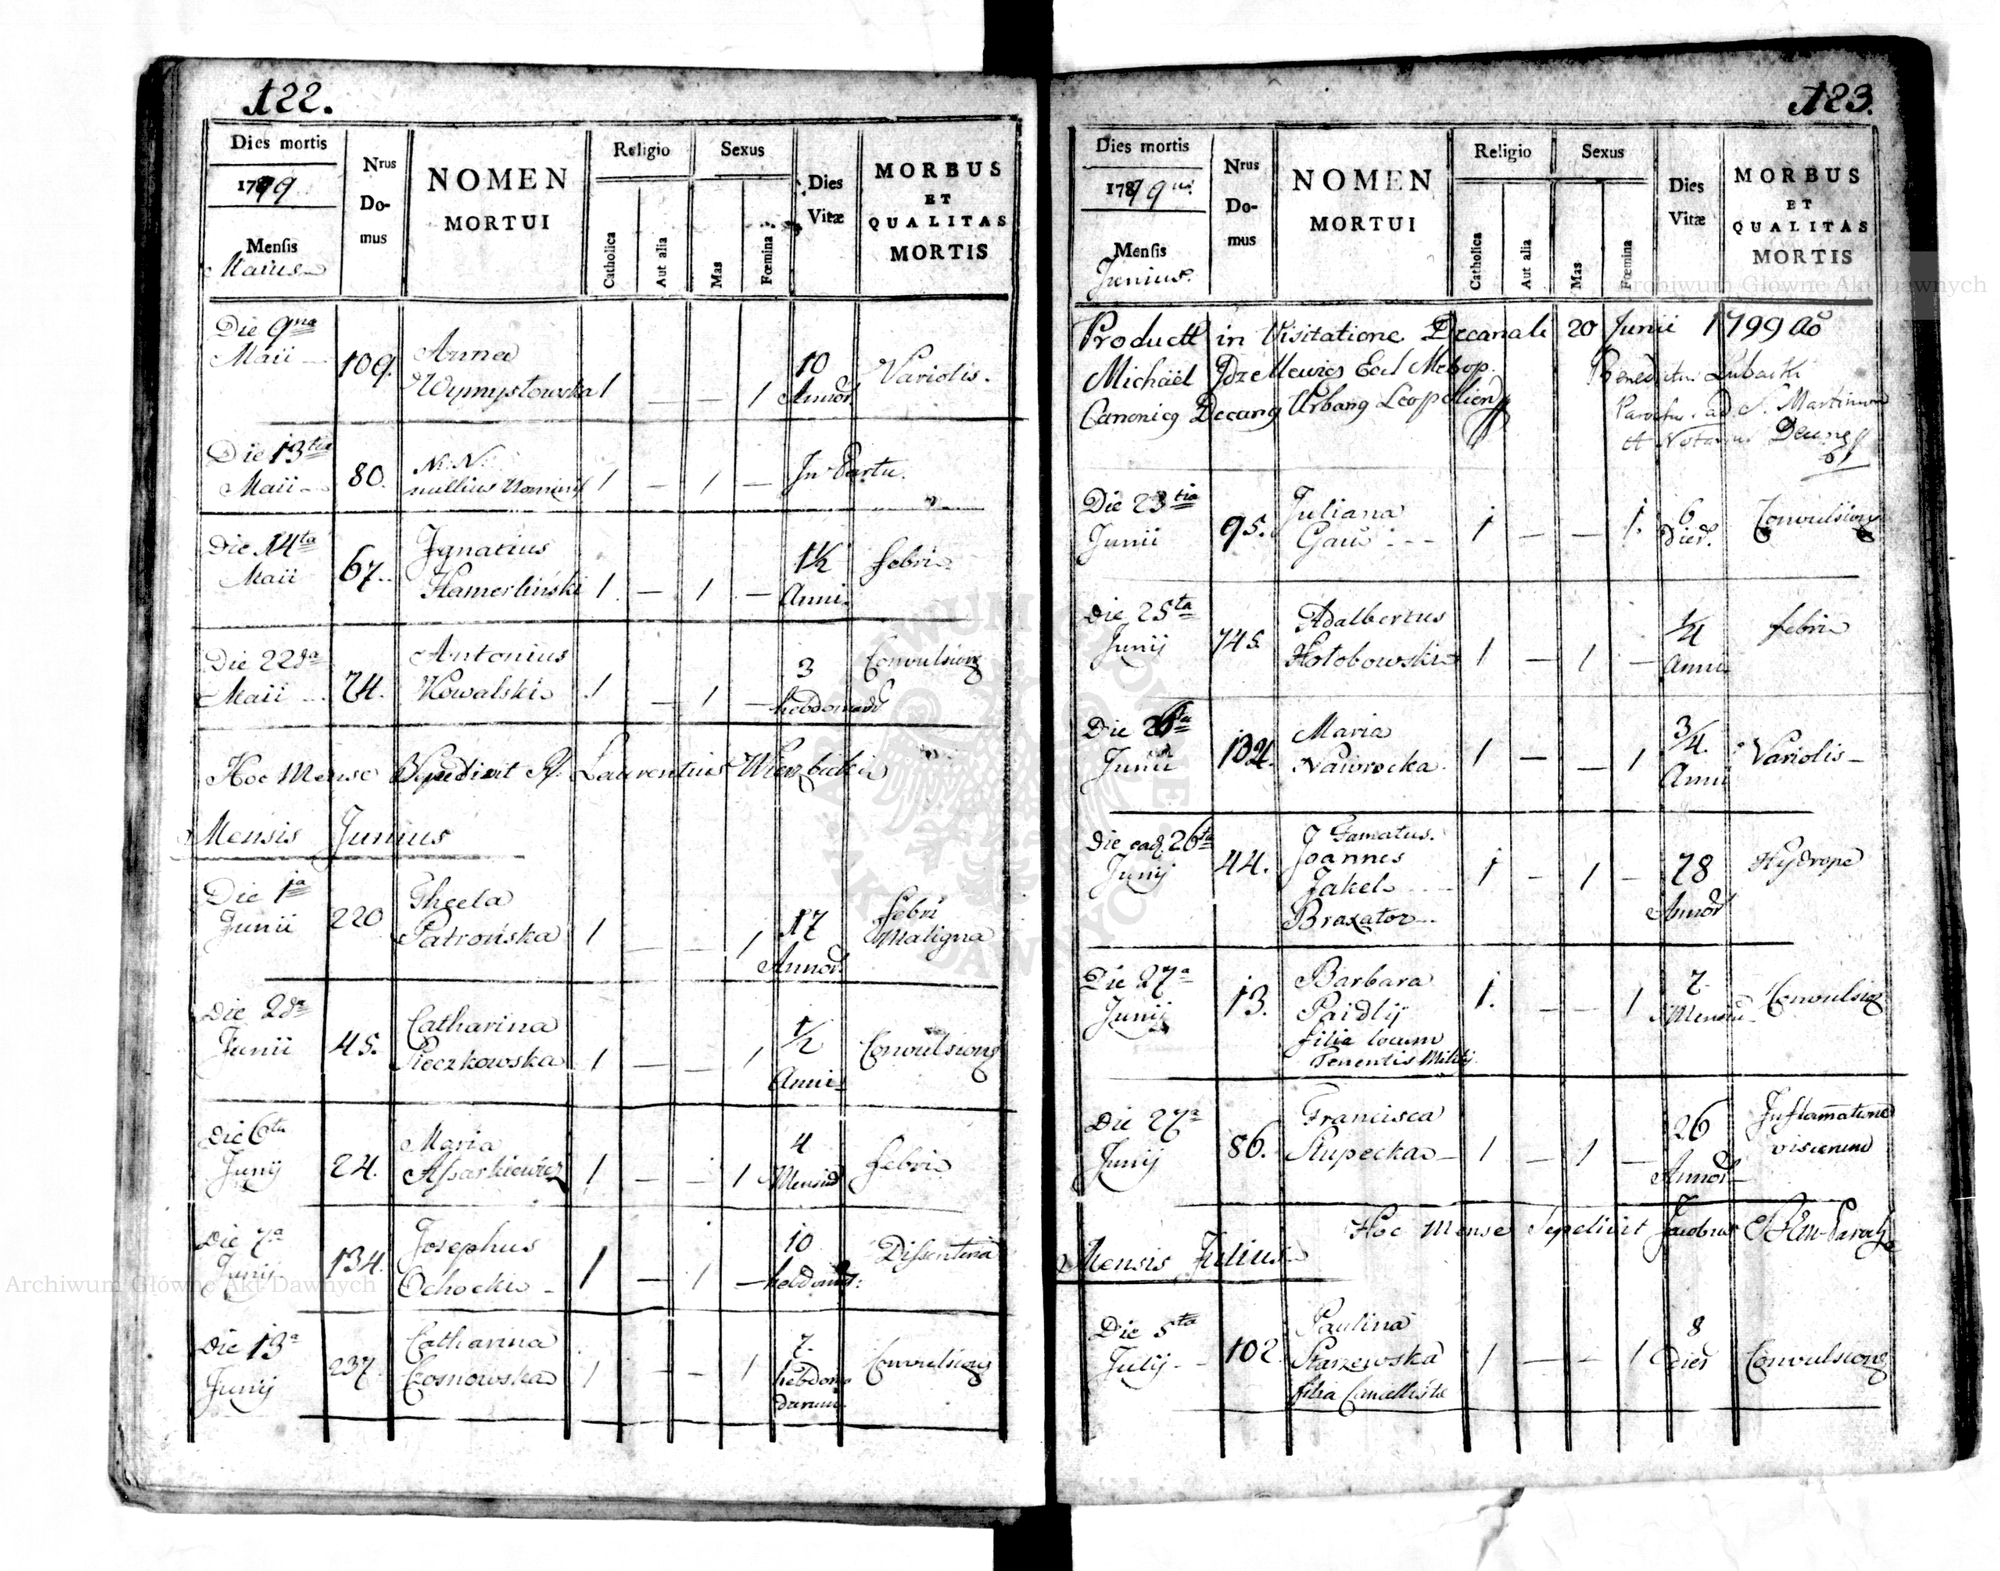 122.
Dies mortis
1799
Mensis
Maius
Nrus
Do-
mus
NOMEN
MORTUI
Religio
Catholica
Aut alia
Sexus
Mas
Fœmina
Dies
Vitæ
MORBUS
ET
QUALITAS
MORTIS
Die 9na
Maii
109.
Anna
Wymysłowska
1 — — 1
10
Annor
Variolis.
Die 13tia
Maii
80.
N: N:
nullius Nominis
1 — 1 —
In Partu.
Die 14ta
Maii
67.
Ignatius
Hamerliński
1 — 1 —
1½
Anni
febri
Die 22da
Maii
74.
Antonius
Kowalski
1 — 1 —
3
hebdomad
Convulsione
Hoc Mense Sepelivit P. Laurentius Wierzbicki
Mensis Junius
Die 1a
Junii
220
Thecla
Patrońska
1 — — 1
17
Annor.
febri
Maligna
Die 2da
Junii
45.
Catharina
Pieczkowska
1 — — 1
½
Anni
Convulsione
Die 6ta
Junij
24.
Maria
1 — — 1
4
Mensiu
febri
Die 7a
Junij
134.
Josephus
Ochocki
1 — 1 —
10
hebdom:
Dissenteria
Die 13a
Junij
237.
Catharina
Czosnowska
1 — — 1
7.
hebdoma
darum.
Convulsione
123.
Dies mortis
1799
Mensis
Junius
Nrus
Do-
mus
NOMEN
MORTUI
Religio
Catholica
Aut alia
Sexus
Mas
Fœmina
Dies
Vitæ
MORBUS
ET
QUALITAS
MORTIS
Product in Visitatione Decanali 20 Junii 1799 ao
Michaël
Canonic Decan Urban
ad S. Martinum
Die 23tia
Junii
95.
Juliana
Gaus
1 — — 1.
6
Dier.
Convulsione
Die 25ta
Junij
145.
Adalbertus
Hołobowski
1 — 1 —
¼
Anni
febri
Die 26ta
Junii
132.
Maria
Nawrocka
1 — — 1
¾
Anni
Variolis
Die ead. 26ta
Junij
44.
Famatus.
Joannes
Jakel
Braxator
1 — 1 —
78
Annor
Hydrope
Die 27a
Junij
13.
Barbara
Paidly
filia locum
Tenentis Milit
1. — — 1
7.
Mensiu
Convulsione
Die 27a
Junij
86.
Francisca
Słupecka
1 — 1 —
26
Annor
Inflamatione
viscerum
Hoc Mense Sepelivit Jacobus
Mensis Julius
Die 5ta
Julij
102
Paulina
Starzewska
filia Cancellistæ
1 — — 1
8
Dier
Convulsione
Archiwum Główne Akt Dawnych
Archiwum Główne Akt Dawnych
ARCHIWUM GŁÓWNE AKT DAWNYCH